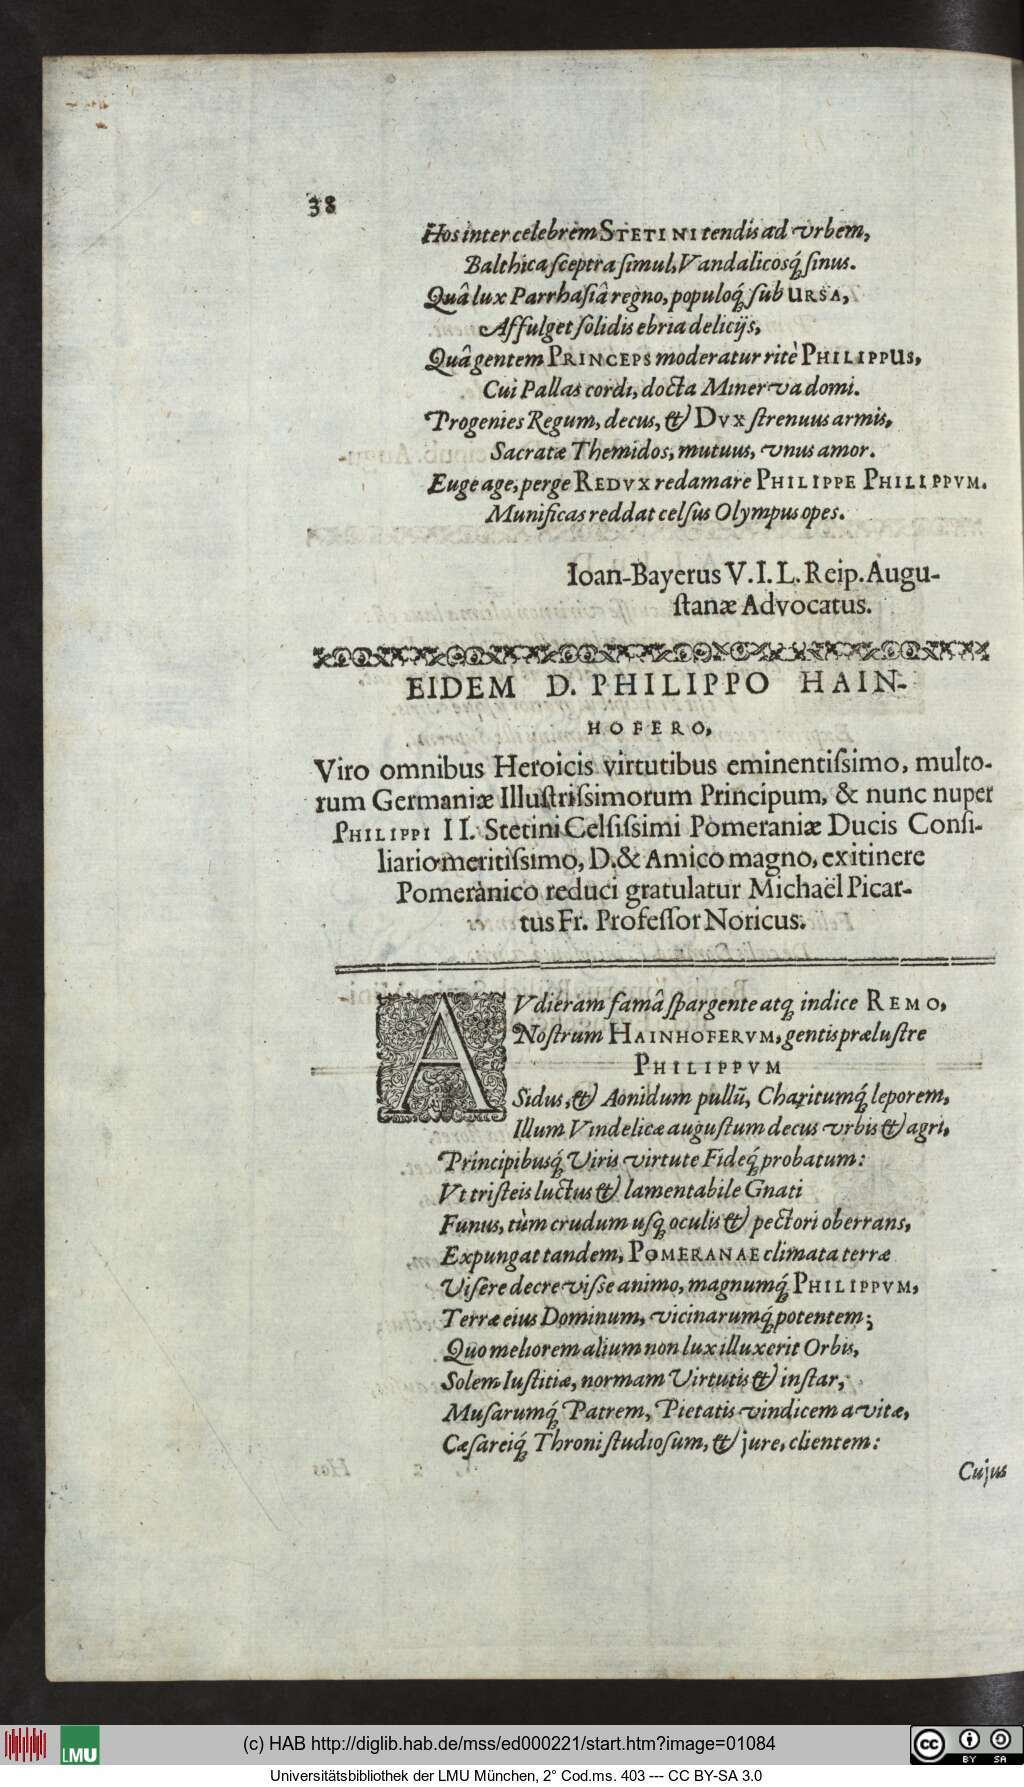 38
Hos inter celebrem STETINI tendis ad vrbem,
Balthica sceptra simul, Vandalicosq́ sinus.
Quâ lux Parrhasiâ regno, populoq́ sub URSA,
Affulget solidis ebria delicijs,
Quâ gentem PRINCEPS moderatur ritè PHILIPPUS,
Cui Pallas cordi, docta Minerva domi.
Progenies Regum, decus, & DVX strenuus armis,
Sacratæ Themidos, mutuus, vnus amor.
Euge age, perge REDVX redamare PHILIPPE PHILIPPVM.
Munificas reddat celsus Olympus opes.
Ioan-Bayerus V. I. L. Reip. Augu-
stanæ Advocatus.
EIDEM D. PHILIPPO HAIN-
HOFERO,
Viro omnibus Heroicis virtutibus eminentissimo, multo-
rum Germaniæ Illustrissimorum Principum, & nunc nuper
PHILIPPI II. Stetini Celsissimi Pomeraniæ Ducis Consi-
liario meritissimo, D. & Amico magno, ex itinere
Pomerànico reduci gratulatur Michaël Picar-
tus Fr. Professor Noricus.
AVdieram famâ spargente atq́ indice REMO,
Nostrum HAINHOFERVM, gentis prælustre
PHILIPPVM
Sidus, & Aonidum pullū, Charitumq́ leporem,
Illum Vindelicæ augustum decus vrbis & agri,
Principibusq́ Viris virtute Fideq́ probatum:
Vt tristeis luctus & lamentabile Gnati
Funus, tùm crudum usq́ oculis & pectori oberrans,
Expungat tandem, POMERANAE climata terræ
Visere decrevisse animo, magnumq́ PHILIPPVM,
Terræ eius Dominum, vicinarumq́ potentem;
Quo meliorem alium non lux illuxerit Orbis,
Solem Iustitiæ, normam Virtutis & instar,
Musarumq́ Patrem, Pietatis vindicem avitæ,
Cæsareiq́ Throni studiosum, & jure, clientem:
Cujus
(c) HAB http://diglib.hab.de/mss/ed000221/start.htm?image=01084
LMU
Universitätsbibliothek der LMU München, 2° Cod.ms. 403 --- CC BY-SA 3.0
cc BY SA